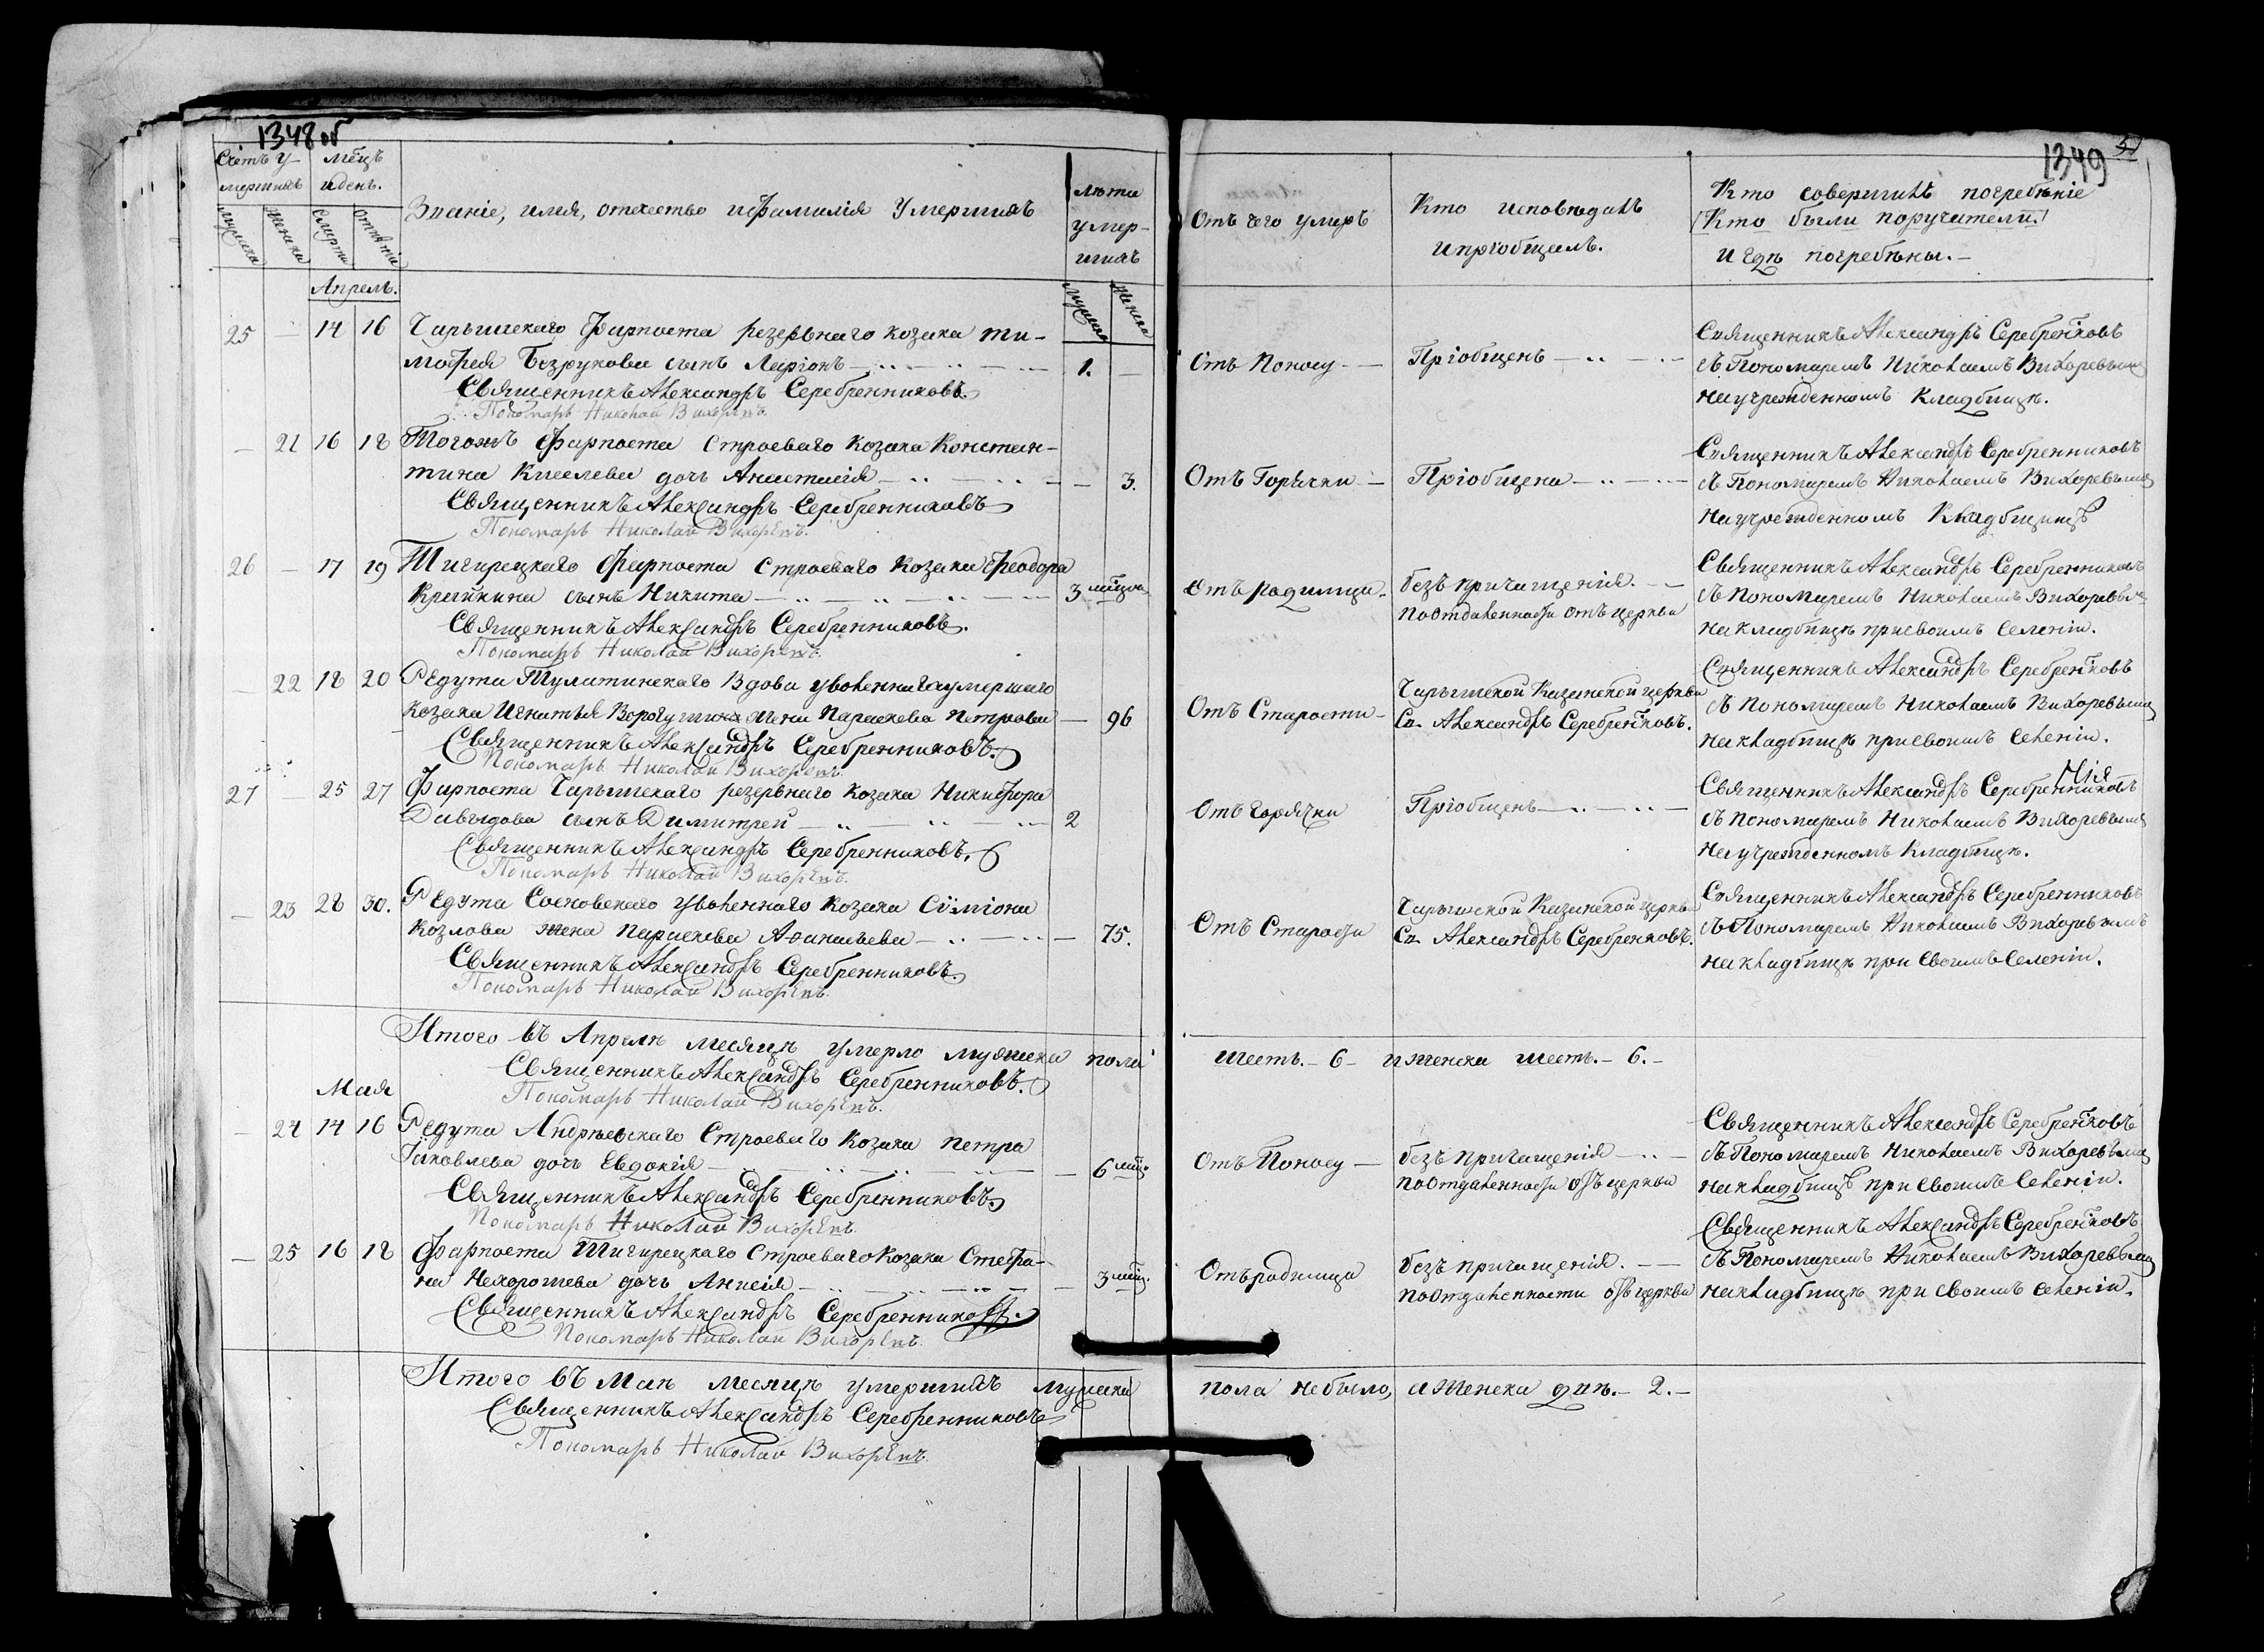 1348 об
Счетъ у-
мершихъ
мѣцъ
и день.
Званіе, имя, отчество и фамилія умершихъ
лѣта
умер-
шихъ
мужска
женска
смерти
отпѣтія
мужска
женска
Апрель.
25 — 14 16 Чарышскаго Фарпоста резервнаго козака Ти-
мофея Безрукова сынъ Ларіонъ — 1. —
Священникъ Александръ Серебренниковъ
Пономарь Николай Вихоревъ.
— 21 16 18 Тогожъ Фарпоста строеваго козака Констан-
тина Киселева дочь Анастасія — — 3.
Священникъ Александръ Серебренниковъ
Пономарь Николай Вихоревъ.
26 — 17 19 Тигирецкаго Фарпоста строеваго козака Феодора
сынъ Никита — 3 мѣсца
Священникъ Александръ Серебренниковъ.
Пономарь Николай Вихоревъ.
— 22 18 20 Редута Тулатинскаго вдова уволеннаго умершаго
козака Игнатья жена Параскева Петрова — 96
Священникъ Александръ Серебренниковъ.
Пономарь Николай Вихоревъ.
27 — 25 27 Фарпоста Чарышскаго резервнаго козака Никифора
Давыдова сынъ Димитрей — 2
Священникъ Александръ Серебренниковъ.
Пономарь Николай Вихоревъ.
— 23 28 30. Редута Сосновскаго уволеннаго козака Сѵміона
Козлова жена Параскева Афанасьева — — 75.
Священникъ Александръ Серебренниковъ.
Пономарь Николай Вихоревъ.
Итого въ Апрелѣ месяцѣ умерло мужска пола
Священникъ Александръ Серебренниковъ.
Пономарь Николай Вихоревъ.
Мая
— 24 14 16 Редута Андреевскаго строеваго козака Петра
Іяковлева дочь Евдокія — — 6 мѣс.
Священникъ Александръ Серебренниковъ
Пономарь Николай Вихоревъ.
— 25 16 18 Фарпоста Тигирецкаго строеваго козака Стефа-
на Нехорошева дочь Анисія — — 3 мѣс.
Священникъ Александръ Серебренниковъ.
Пономарь Николай Вихоревъ.
Итого въ Маѣ месяцѣ умершихъ мужска
Священникъ Александръ Серебренниковъ
Пономарь Николай Вихоревъ.
1349
Отъ чего умеръ
Кто исповѣдалъ
и пріобщалъ.
Кто совершилъ погребѣніе
(Кто были поручители)
и гдѣ погребѣны. —
Отъ Поносу — Пріобщенъ —
Священникъ Александръ Серебренковъ
съ Пономаремъ Николаемъ Вихоревымъ
на учрежденномъ кладбищѣ.
Отъ Горячки — Пріобщена —
Священникъ Александръ Серебренниковъ
съ Пономаремъ Николаемъ Вихоревымъ
на учрежденномъ кладбищѣ
Отъ Родимца. безъ причащенія. —
по отдаленности отъ церкви
Священникъ Александръ Серебренниковъ
съ Пономаремъ Николаемъ Вихоревым
на кладбищѣ при своимъ селеніи.
Отъ Старости — Чарышской Казанской церкви
Св. Александръ Серебренковъ.
Священникъ Александръ Серебренковъ
съ Пономаремъ Николаемъ Вихоревымъ
на кладбищѣ при своимъ селеніи.
Отъ Горячки Пріобщенъ —
Священникъ Александръ Серебренниковъ
съ Пономаремъ Николаемъ Вихоревымъ
на учрежденномъ кладбищѣ.
Отъ Старости Чарышской Казанской церкви
Св. Александръ Серебренковъ.
Священникъ Александръ Серебренниковъ
съ Пономаремъ Николаемъ Вихоревымъ
на кладбищѣ при своимъ селеніи.
шесть. — 6 — и женска шесть. — 6. —
Отъ Поносу — безъ причащенія —
по отдаленности отъ церкви
Священникъ Александръ Серебренковъ
съ Пономаремъ Николаемъ Вихоревымъ
на кладбищѣ при своимъ селеніи.
Отъ родимца безъ причащенія. —
по отдаленности отъ церкви
Священникъ Александръ Серебренковъ
съ Пономаремъ Николаемъ Вихоревымъ
на кладбищѣ при своимъ селеніи.
пола небыло, а женска двѣ. — 2. —